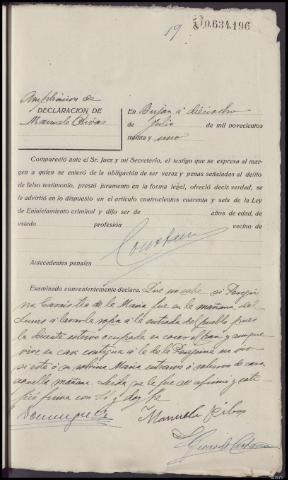 19
D0.634,196
Ampliacion de
DECLARACION DE
Manuela Ribas
En Buján a dieciocho
de Julio de mil novecientos
treinta y uno
Compareció ante el Sr. Juez y mi Secretario, el testigo que se expresa al mar-
gen a quien se enteró de la obligación de ser veraz y penas señaladas al delito
de falso testimonio, prestó juramento en forma legal, ofreció decir verdad, se
le advirtió en lo dispuesto en el artículo cuatrocientos cuarenta y seis de la Ley
de Enjuiciamiento criminal y dijo ser de años de edad, de
estado profesión vecino de
Antecedentes penales
Examinado convenientemente declara: Que no sabe si
na de la Maria fue en la mañana del
Lunes a lavar la ropa a la entrada del pueblo pues
la dicente estuvo ocupada en cocer el pan y aunque
vive en casa contigua a la de la no vio
si esta ó su sobrina Maria entraron ó salieron de casa
aquella mañana. Leida que le fue se afirma y rati-
fica firma con S.S. y doy fe
Manuela Ribas